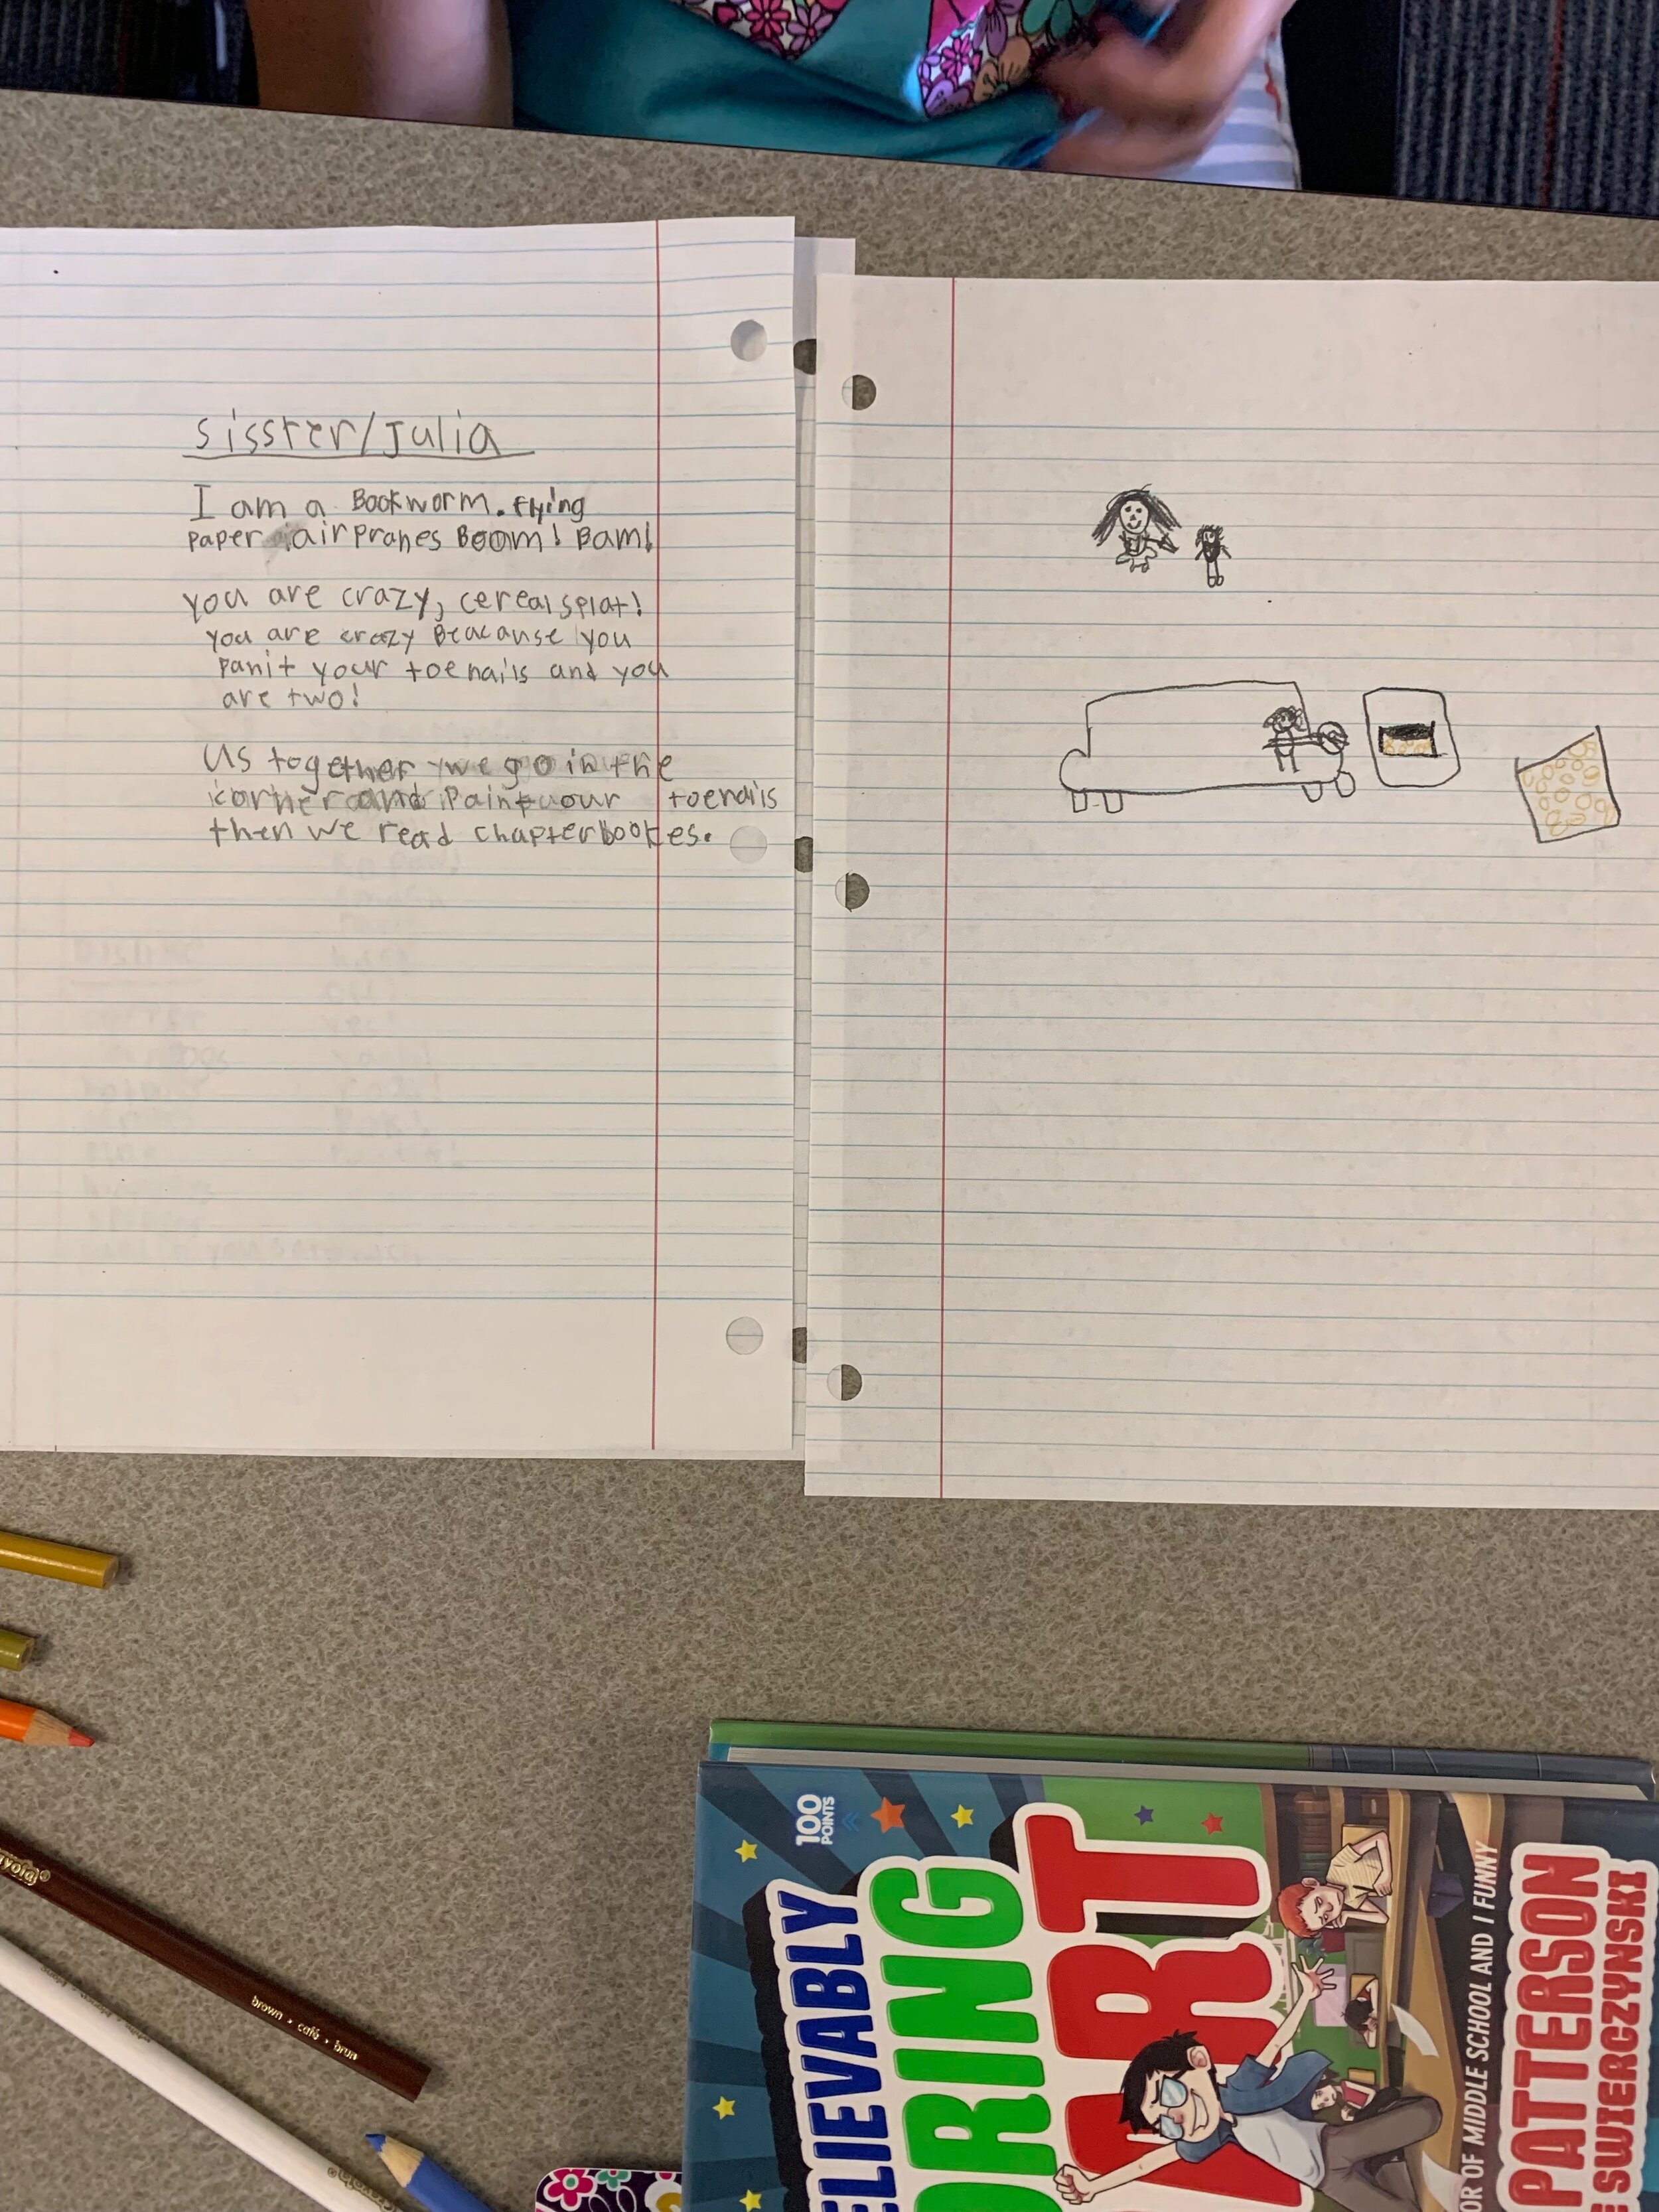 sisster/Julia
I am a Bookworm. flying
paper airpranes Boom! Bam!
you are crazy, cereal splat!
you are crazy Beacause you
panit your toenails and you
are two!
Us together we go in the
corner and Paint our toenails
then we read chapterbookes.
100
POINTS
ELIEVABLY
ORING
ART
OR OF MIDDLE SCHOOL AND I FUNNY
PATTERSON
SWIERCZYNSKI
ayola®
brown • café • brun